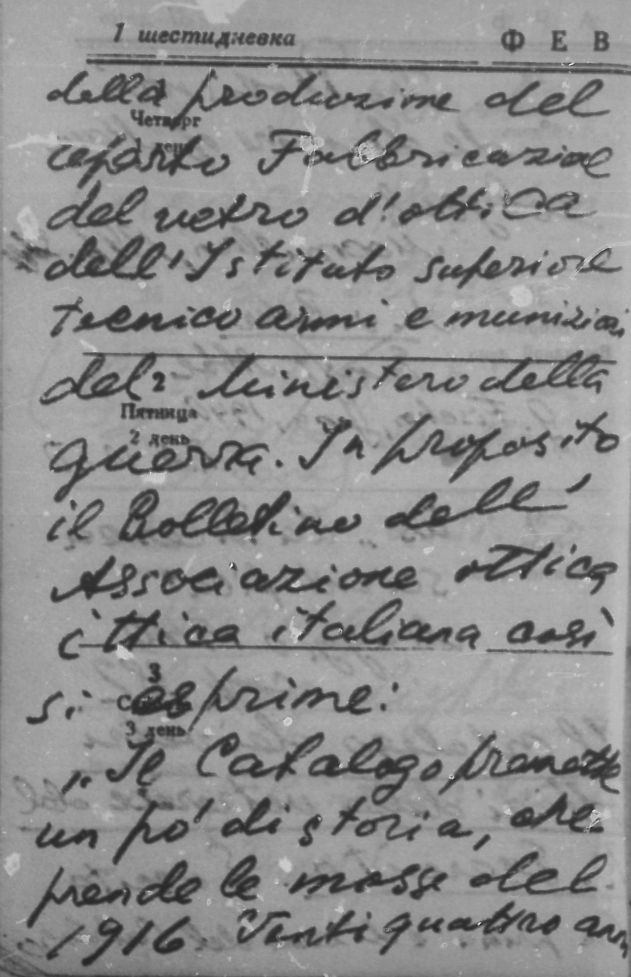 1 шестидневка
ФЕВ
della produzione del
Четверг
1 день
reparto Fabbricazione
del vetro d'ottica
dell'Istituto superiore
tecnico armi e munizioni
del Ministero della
2
Пятница
2 день
guerra. In proposito
il Bollettino dell'
Associazione ottica
ittica italiana così
3
si esprime:
3 день
„Il Catalogo premette
un po' di storia, che
prende le mosse del
1916 Ventiquattro anni